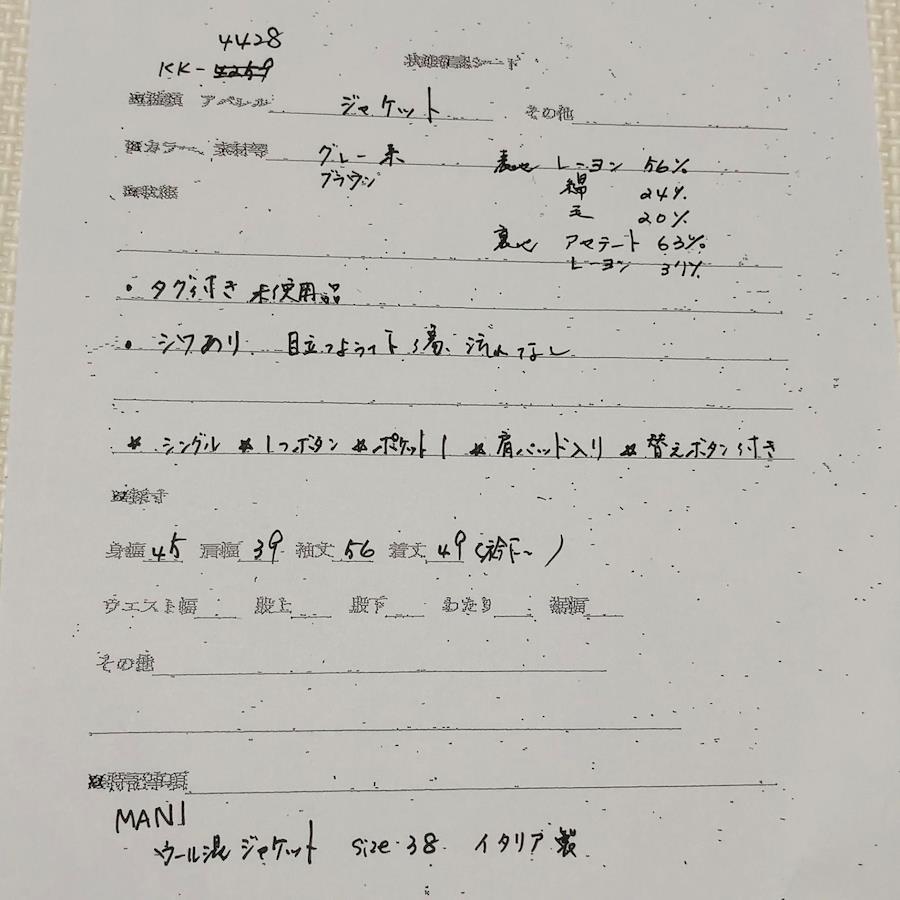 4428
KK-
状態確認シート
※種類 アパレル ジャケット その他
※カラー、素材等 グレー系 表地 レーヨン 56%
ブラウン 綿 24%
※状態 毛 20%
裏地 アセテート 63%
レーヨン 37%
・タグ付き 未使用品
・シワあり 目立つようなヨゴレ、流れなし
* シングル * 1つボタン * ポケット1 * 肩パッド入り * 替えボタン付き
※採寸
身幅 45 肩幅 39 袖丈 56 着丈 49 (衿下~)
ウエスト幅 股上 股下 わたり 裾幅
その他
※特記事項
MANI
ウール混 ジャケット size 38 イタリア製